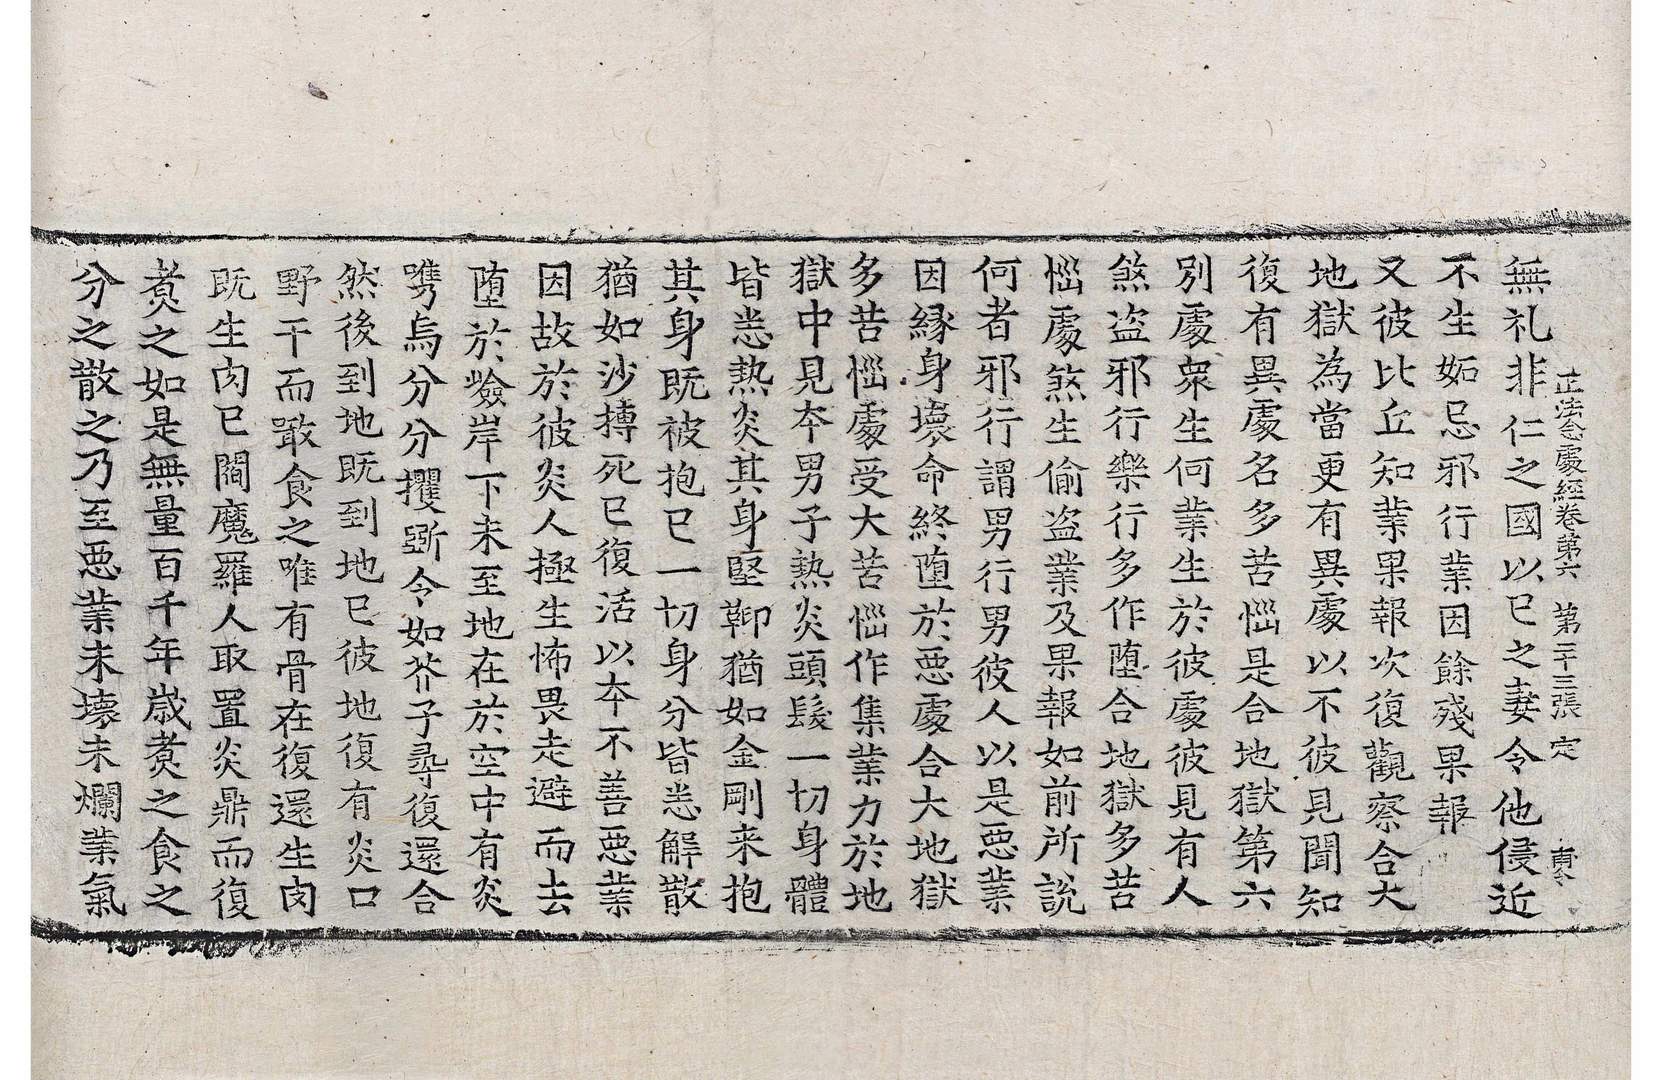 正法念處經卷第六 第二十三張 定
無礼非仁之國以巳之妻令他侵近
不生妬忌邪行業因餘殘果報
又彼比丘知業果報次復觀察合大
地獄為當更有異處以不彼見聞知
復有異處名多苦惱是合地獄第六
別處衆生何業生於彼處彼見有人
煞盗邪行樂行多作堕合地獄多苦
惱處煞生偷盗業及果報如前所說
何者邪行謂男行男彼人以是惡業
因緣身壞命終堕於惡處合大地獄
多苦惱處受大苦惱作集業力於地
獄中見夲男子熱炎頭髮一切身體
皆悉熱炎其身堅鞕猶如金剛来抱
其身既被抱巳一切身分皆悉解散
猶如沙摶死巳復活以夲不善惡業
因故於彼炎人極生怖畏走避而去
堕於嶮岸下未至地在於空中有炎
㗲烏分分攫斲令如芥子尋復還合
然後到地既到地巳彼地復有炎口
野干而噉食之唯有骨在復還生肉
既生肉巳閻魔羅人取置炎鼎而復
煑之如是無量百千年歲煑之食之
分之散之乃至惡業未壞未爛業氣